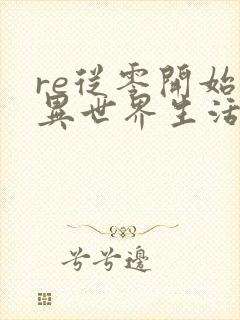 re從零開始
異世界生活
兮兮邊